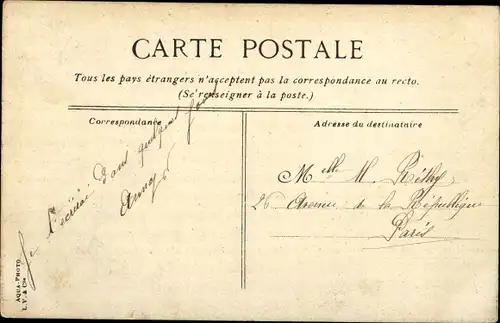 CARTE POSTALE
Tous les pays étrangers n'acceptent pas la correspondance au recto.
(Se renseigner à la poste.)
Correspondance
Adresse du destinataire
Je t'écrirai dans quelques jours
Melle M. Réthy
26 Avenue de la République
Paris
AQUA-PHOTO
L. V. & Cie